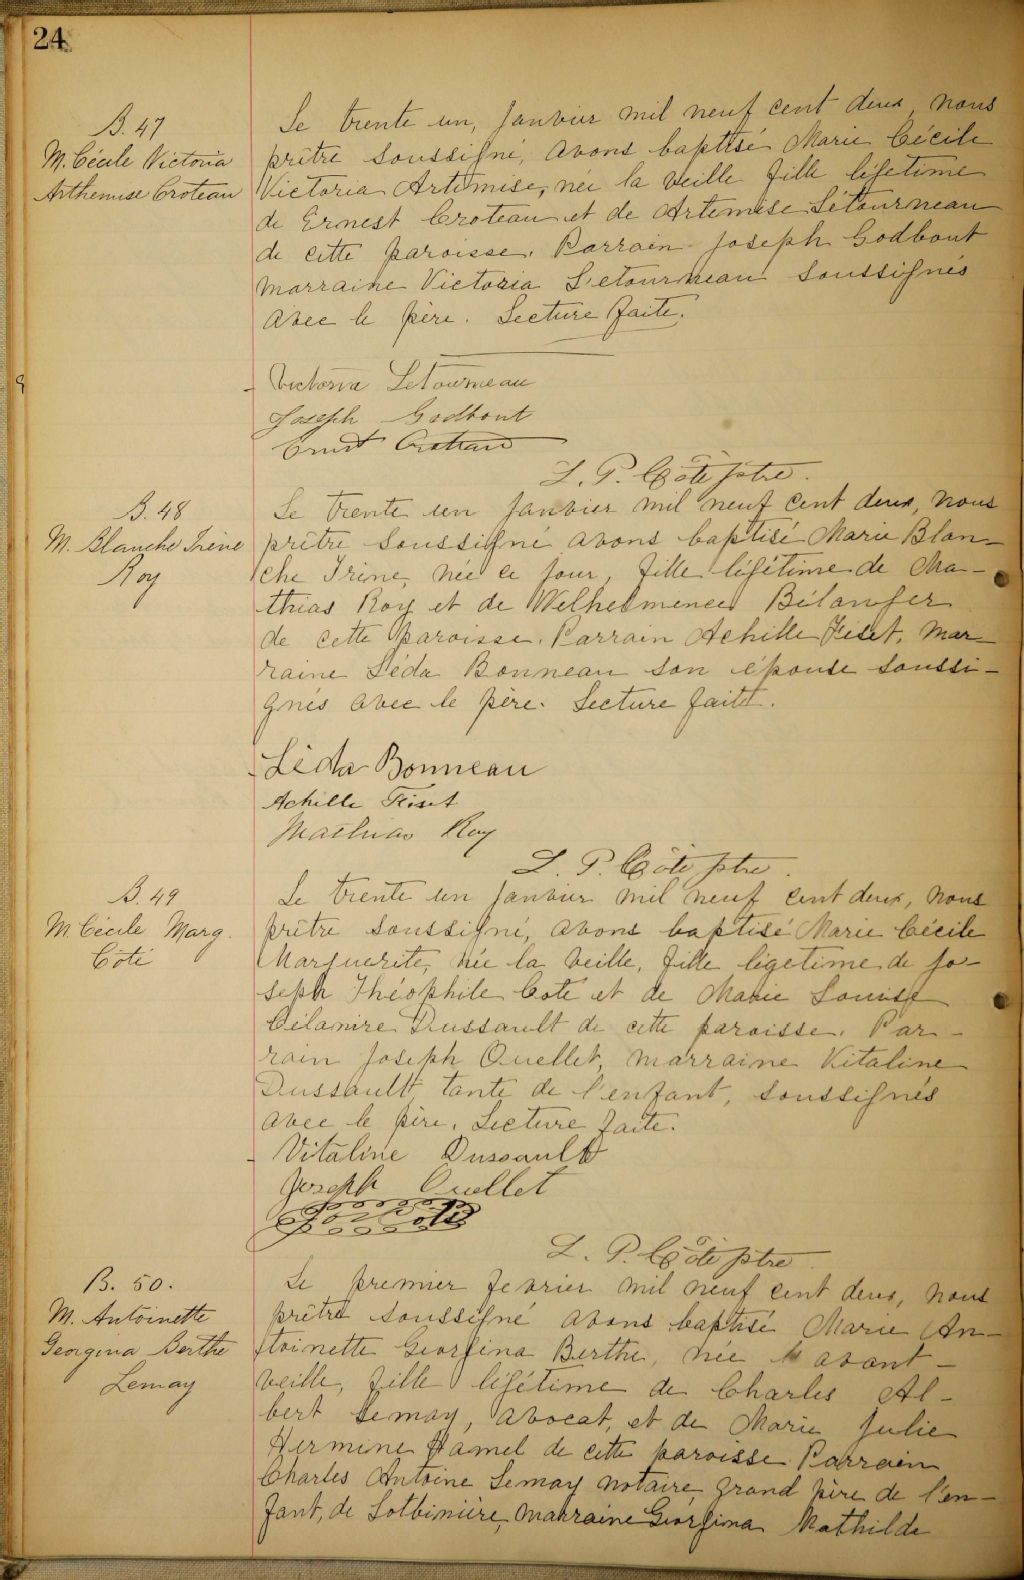 24
B. 47
M. Cécile Victoria
Arthemise Croteau
Le trente un, Janvier mil neuf cent deux, nous
prêtre soussigné, avons baptisé Marie Cécile
Victoria Artémise, née la veille fille légetime
de Ernest Croteau et de Artémise Létourneau
de cette paroisse. Parrain Joseph Godbout
marraine Victoria Letourneau soussignés
avec le père. Lecture faite.
Victoria Letourneau
Joseph Godbout
Ernest Croteau
L. P. Côté ptre.
B. 48
M. Blanche Irène
Roy
Le trente un Janvier mil neuf cent deux, nous
prêtre soussigné avons baptisé Marie Blan-
che Irène, née ce jour, fille légétime de Ma-
thias Roy et de Belanger
de cette paroisse. Parrain Achille Fiset, mar-
raine Léda Bonneau son épouse soussi-
gnés avec le père. Lecture faite.
Léda Bonneau
Achille Fiset
Mathias Roy
L. P. Côté ptre.
B. 49
M. Cécile Marg.
Côté
Le trente un Janvier mil neuf cent deux, nous
prêtre soussigné, avons baptisé Marie Cécile
Marguerite, née la veille, fille légetime de Jo-
seph Théophile Coté et de Marie Louise
Célanire Dussault de cette paroisse. Par-
rain Joseph Ouellet, marraine Vitaline
Dussault, tante de l'enfant, soussignés
avec le père. Lecture faite.
Vitaline Dussault
Joseph Ouellet
Jos Coté
L. P. Côté ptre.
B. 50.
M. Antoinette
Georgina Berthe
Lemay
Le premier fevrier mil neuf cent deux, nous
prêtre soussigné avons baptisé Marie An-
toinette Georgina Berthe, née avant-
veille, fille légétime de Charles Al-
bert Lemay, avocat, et de Marie Julie
Hermine Hamel de cette paroisse Parrain
Charles Antoine Lemay notaire, grand père de l'en-
fant, de Lotbinière, marraine Georgina Mathilde